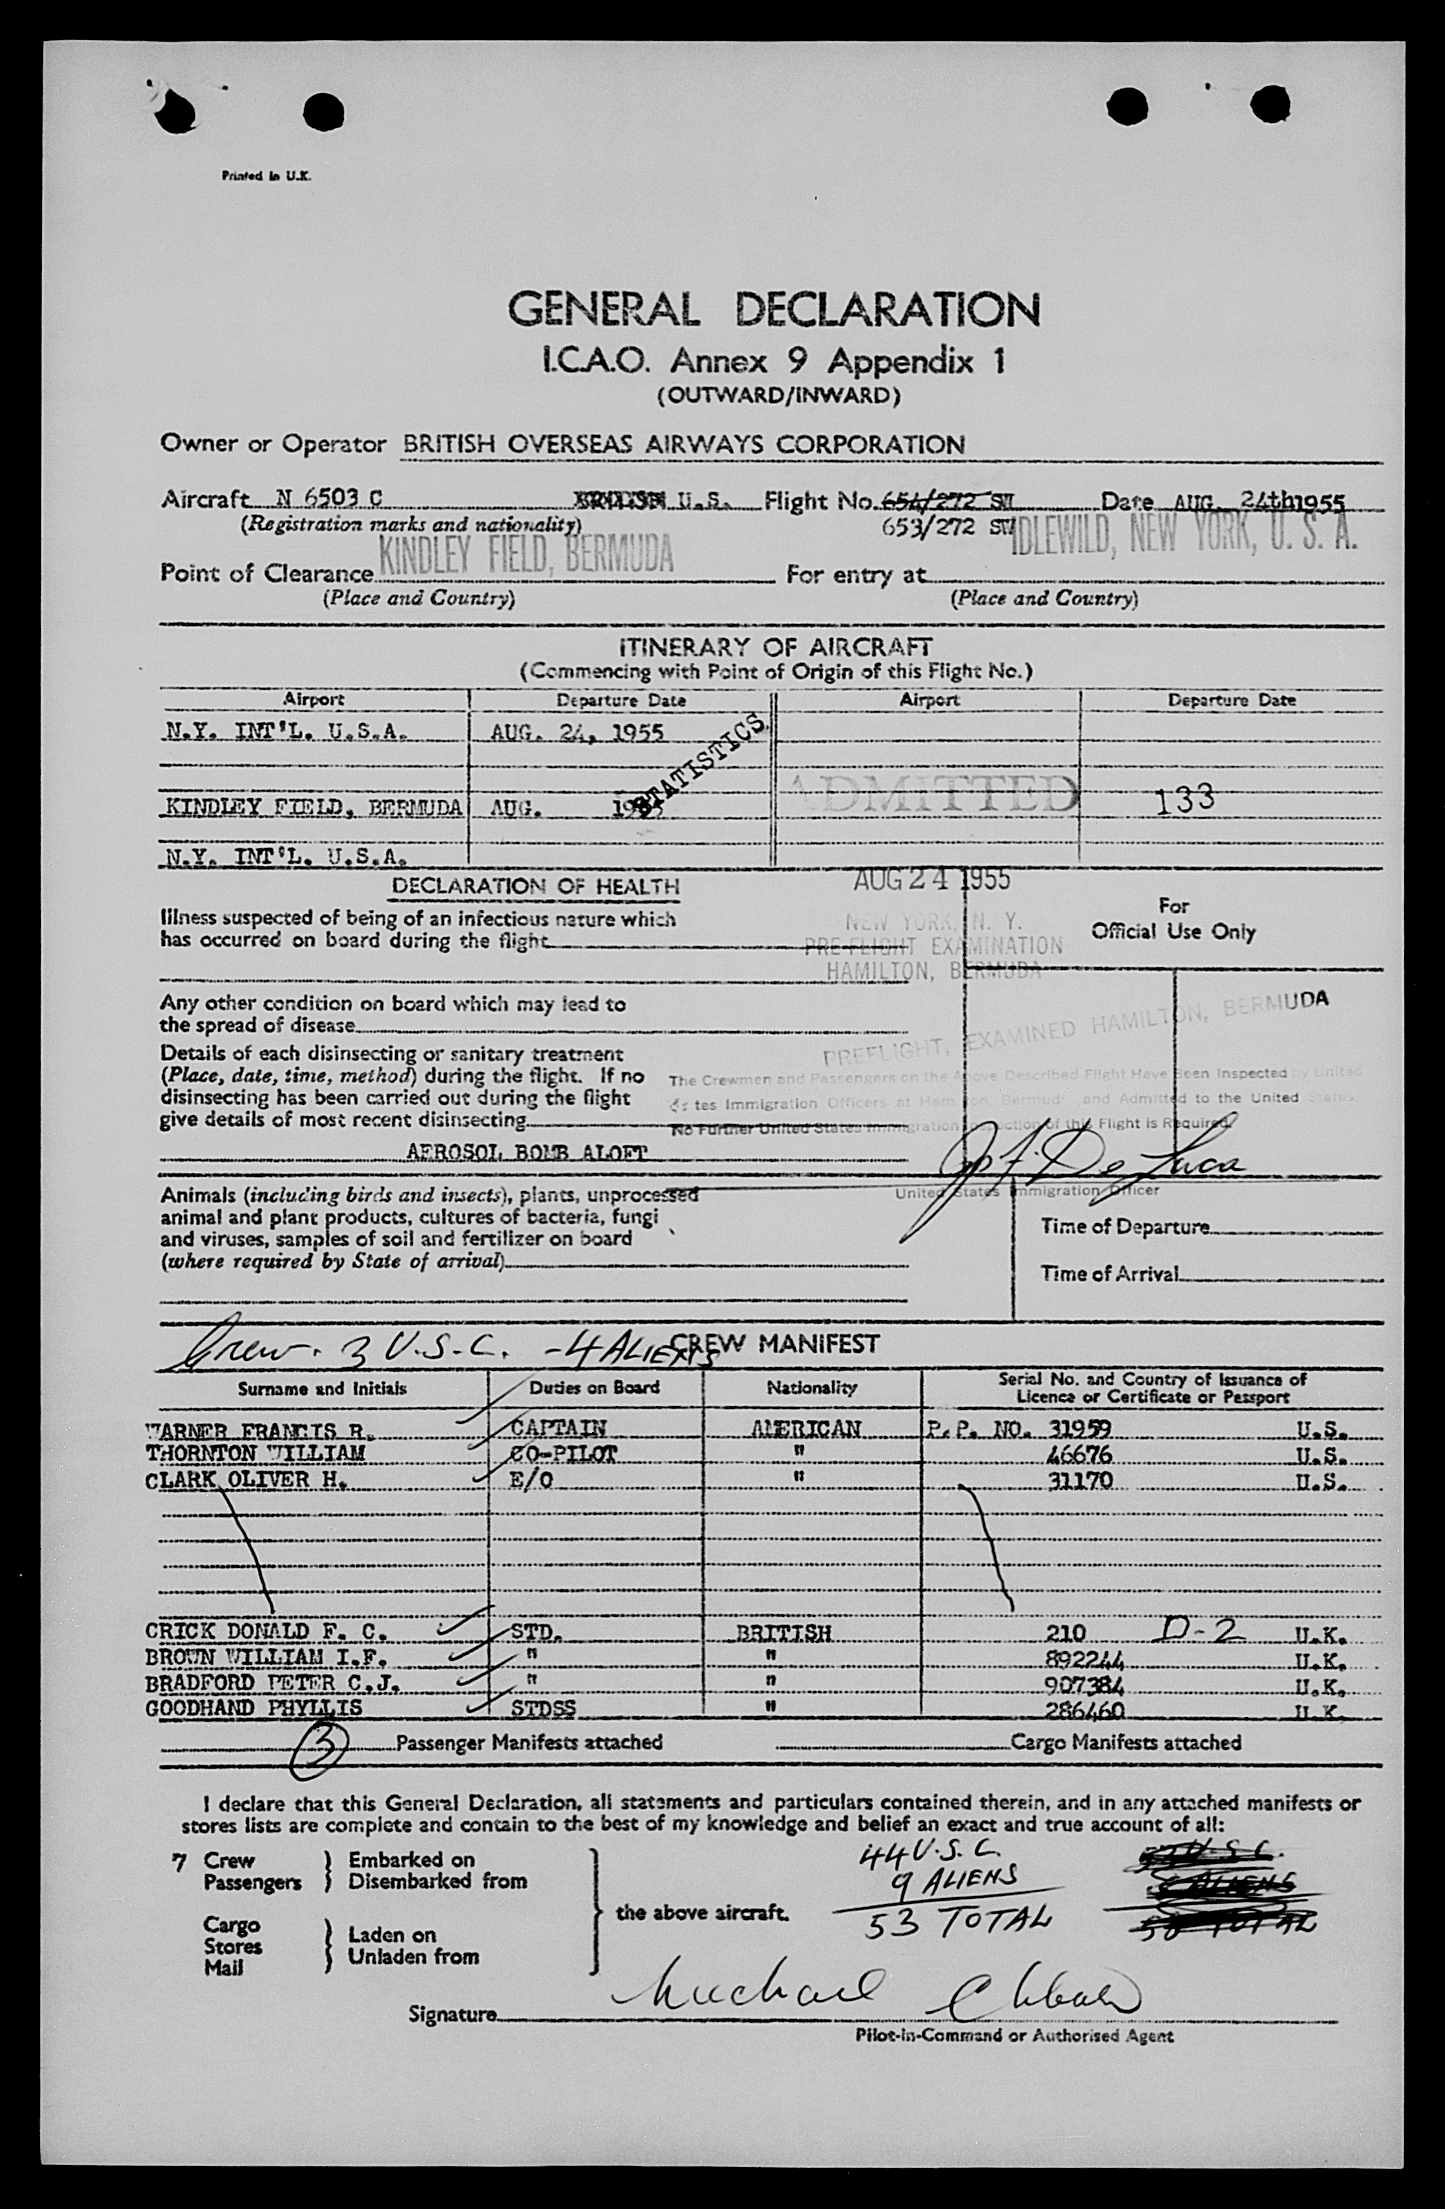 Printed in U.K.
GENERAL DECLARATION
I.C.A.O. Annex 9 Appendix 1
(OUTWARD/INWARD)
Owner or Operator BRITISH OVERSEAS AIRWAYS CORPORATION
Aircraft N 6503 C U.S. Flight No. 654/272 SW Date AUG. 24th1955
(Registration marks and nationality) 653/272 SW IDLEWILD, NEW YORK, U. S. A.
KINDLEY FIELD, BERMUDA
Point of Clearance For entry at
(Place and Country) (Place and Country)
ITINERARY OF AIRCRAFT
(Commencing with Point of Origin of this Flight No.)
Airport Departure Date Airport Departure Date
N.Y. INT'L. U.S.A. AUG. 24, 1955
STATISTICS.
KINDLEY FIELD, BERMUDA AUG. 1955 ADMITTED 133
N.Y. INT'L. U.S.A.
AUG 24 1955
DECLARATION OF HEALTH
For
Official Use Only
Illness suspected of being of an infectious nature which
has occurred on board during the flight
NEW YORK, N. Y.
PRE-FLIGHT EXAMINATION
HAMILTON, BERMUDA
Any other condition on board which may lead to
the spread of disease
PREFLIGHT, EXAMINED HAMILTON, BERMUDA
Details of each disinsecting or sanitary treatment
(Place, date, time, method) during the flight. If no
disinsecting has been carried out during the flight
give details of most recent disinsecting
The Crewmen and Passengers on the Above Described Flight Have Been Inspected by United
tes Immigration Officers at Hamilton, Bermuda and Admitted to the United States.
No Further United States Immigration Inspection of this Flight is Required
AEROSOL BOMB ALOFT
Jos F. De Luca
United States Immigration Officer
Animals (including birds and insects), plants, unprocessed
animal and plant products, cultures of bacteria, fungi
and viruses, samples of soil and fertilizer on board
(where required by State of arrival)
Time of Departure
Time of Arrival
Crew. 3 U.S.C. - 4 ALIENS CREW MANIFEST
Surname and Initials Duties on Board Nationality Serial No. and Country of Issuance of
Licence or Certificate or Passport
WARNER FRANCIS R. CAPTAIN AMERICAN P.P. NO. 31959 U.S.
THORNTON WILLIAM CO-PILOT " 46676 U.S.
CLARK OLIVER H. E/O " 31170 U.S.
CRICK DONALD F. C. STD. BRITISH 210 D-2 U.K.
BROWN WILLIAM I.F. " " 892244 U.K.
BRADFORD PETER C.J. " " 907384 U.K.
GOODHAND PHYLLIS STDSS " 286460 U.K.
3 Passenger Manifests attached Cargo Manifests attached
I declare that this General Declaration, all statements and particulars contained therein, and in any attached manifests or
stores lists are complete and contain to the best of my knowledge and belief an exact and true account of all:
7 Crew } Embarked on
Passengers } Disembarked from
44 U.S.C.
9 ALIENS
53 TOTAL
the above aircraft.
Cargo
Stores } Laden on
Mail } Unladen from
Signature Michael
Pilot-in-Command or Authorised Agent